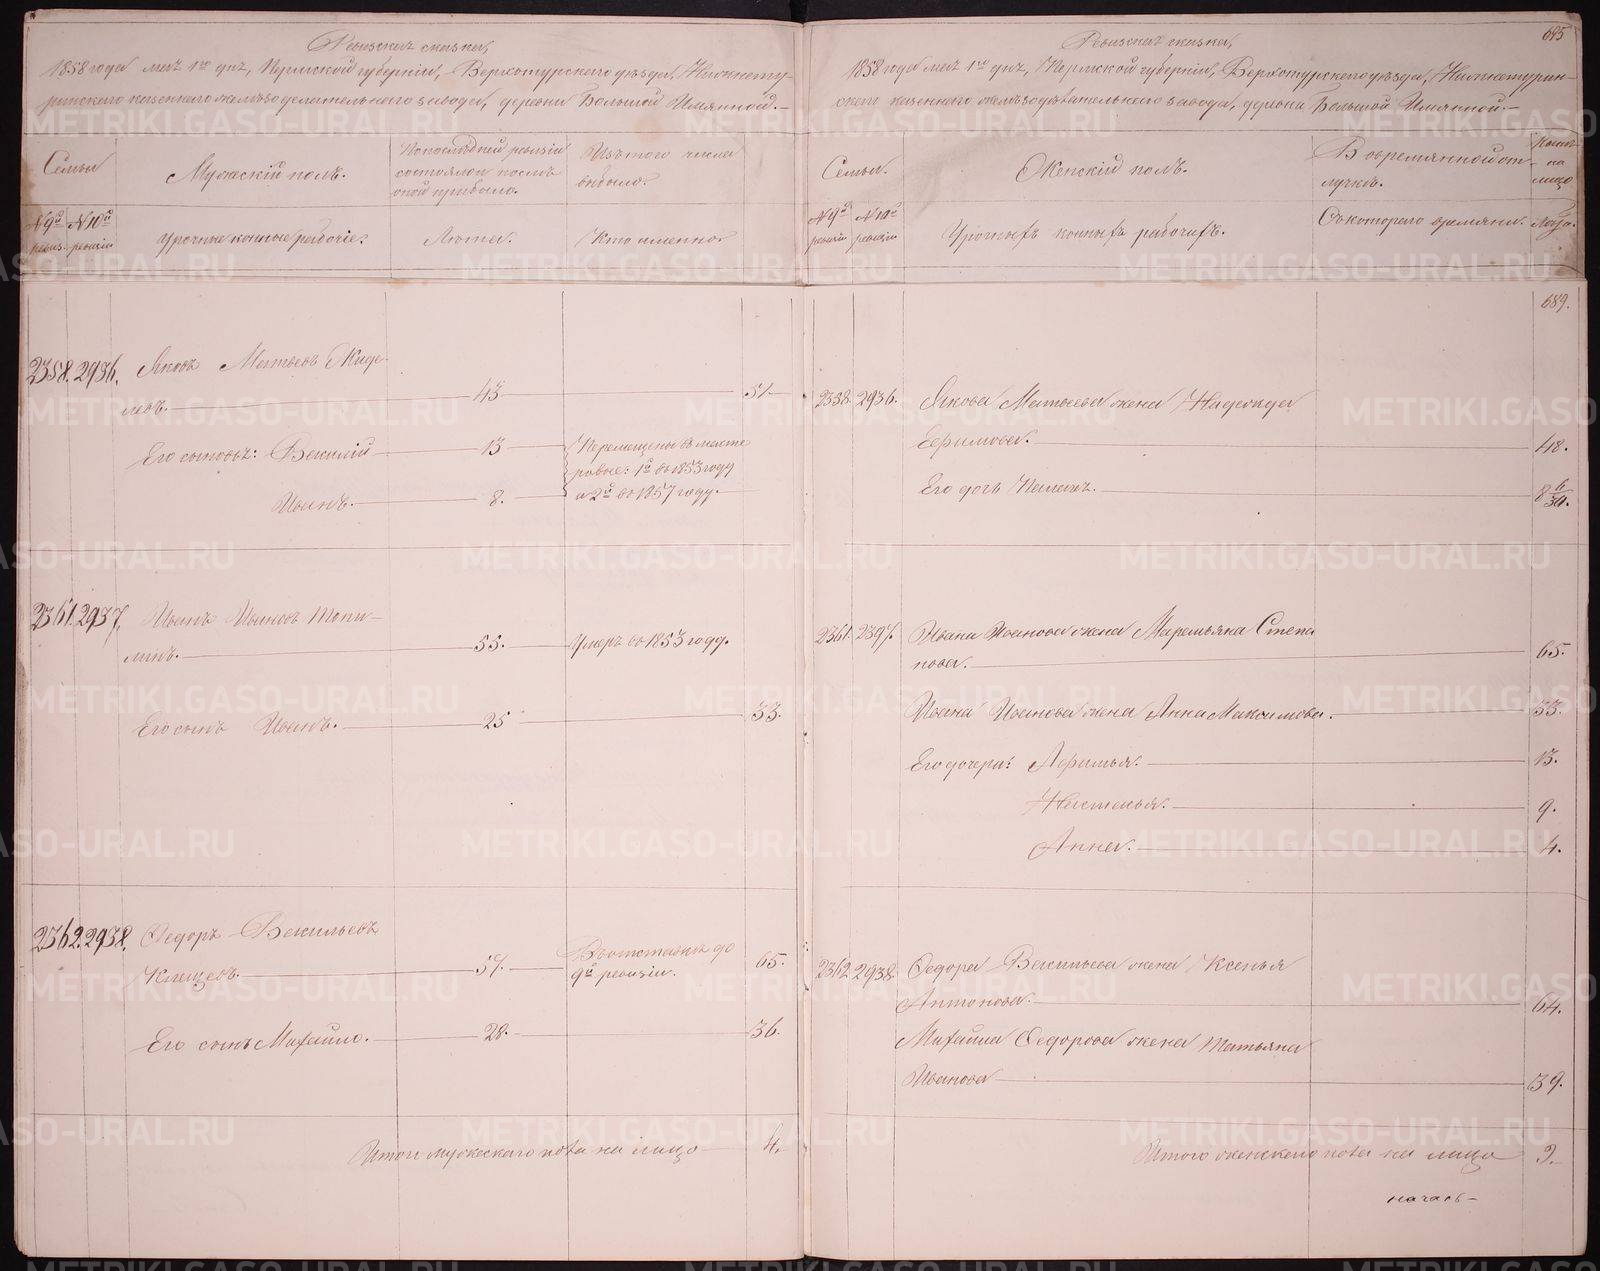 Ревизская сказка,
1858 года мая 1го дня, Пермской губернии, Верхотурскаго уезда, Нижнету-
ринскаго казеннаго железоделательнаго завода, деревни Большой Имянной.-
Семьи
Мужескій полъ.
По последней ревизіи
состояло и после
оной прибыло.
Изъ того числа
выбыло.
№ 9й № 10й
ревиз. ревизіи
Урочные конные рабочіе.
Лета.
Кто именно
2358. 2936.
Яковъ Матвеевъ Жиде-
левъ. 43 51.
Его сыновья: Василій 13
Иванъ. 8.
Перемещены въ масте
ровые: 1й въ 1853 году
а 2й въ 1857 году.
2361. 2937.
Иванъ Ивановъ Топи-
линъ. 55. Умеръ въ 1853 году.
Его сынъ Иванъ. 25 33.
2362. 2938.
Федоръ Васильевъ
Клещевъ. 57. Въ отставке до 65.
9й ревизіи.
Его сынъ Михайло. 28. 36.
Итого мужескаго пола на лицо 4.
695
Ревизская сказка,
1858 года мая 1го дня, Пермской губерніи, Верхотурскаго уезда, Нижнетурин-
скаго казеннаго железоделательнаго завода, деревни Большой Имянной.-
Семьи.
Женскій полъ.
Во временной от-
лучке.
на
лицо
№ 9й № 10й
ревизіи ревизіи
Урочныхъ конныхъ рабочихъ.
Съ котораго времяни.
Лета.
689.
2358. 2936.
Якова Матвеева жена Надежда
Ефимова. 48.
Его дочь Пелагея. 8
2361. 2397.
Ивана Иванова жена Маремьяна Степа
нова. 65.
Ивана Иванова жена Анна Максимова. 33.
Его дочери: Афимья. 13.
Настасья. 9.
Анна. 4.
2362. 2938.
Федора Васильева жена Ксенья
Антонова. 64.
Михайла Федорова жена Татьяна
Иванова 39.
Итого женскаго пола на лицо 9.
METRIKI.GASO-URAL.RU